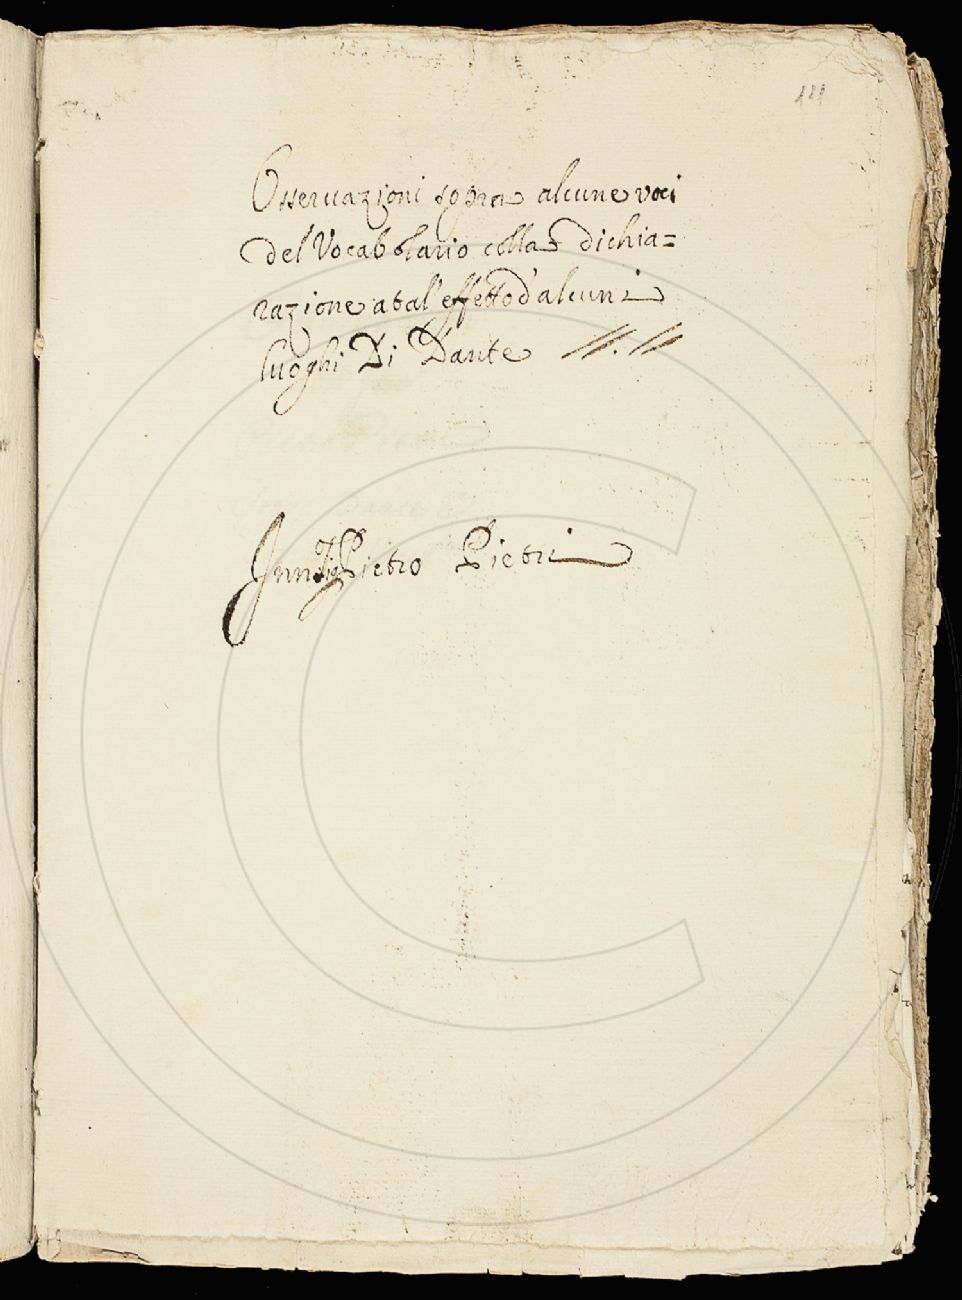 Osseruazioni sopra alcune voci
del Vocabolario colla dichia=
razione a tal'effetto d'alcuni
luoghi Di Dante //.//
Pietro Pietri